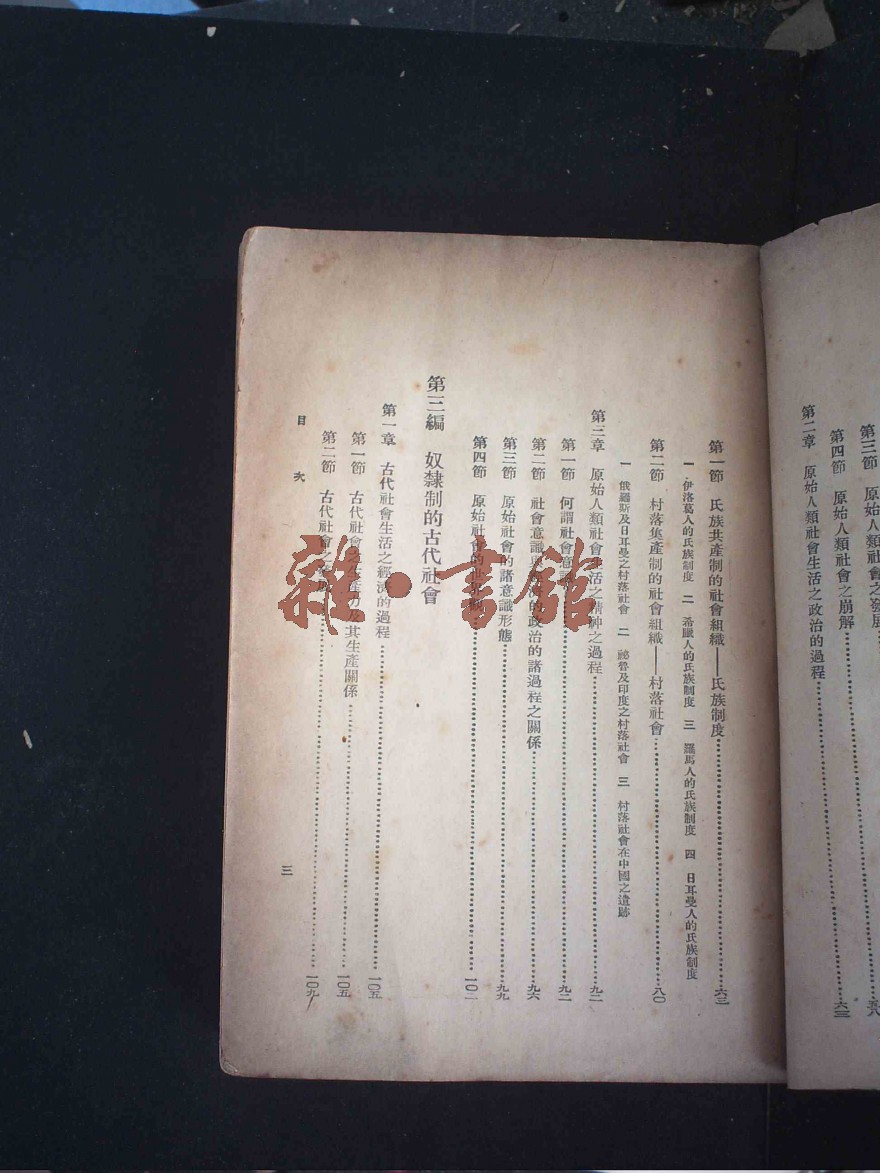 第三節 原始人類社會之發展……五八
第四節 原始人類社會之崩解……六三
第二章 原始人類社會生活之政治的過程……六三
第一節 氏族共產制的社會組織——氏族制度……六三
一 伊洛葛人的氏族制度 二 希臘人的氏族制度 三 羅馬人的氏族制度 四 日耳曼人的氏族制度
第二節 村落集產制的社會組織——村落社會……八〇
一 俄羅斯及日耳曼之村落社會 二 祕魯及印度之村落社會 三 村落社會在中國之遺跡
第三章 原始人類社會生活之精神之過程……九二
第一節 何謂社會意識……九二
第二節 社會意識與經濟的政治的諸過程之關係……九六
第三節 原始社會的諸意識形態……九九
第四節 原始社會的世界……一〇二
第三編 奴隸制的古代社會
第一章 古代社會生活之經濟的過程……一〇五
第一節 古代社會之生產力及其生產關係……一〇五
第二節 古代社會之發展……一〇九
目次
三
雜·書館